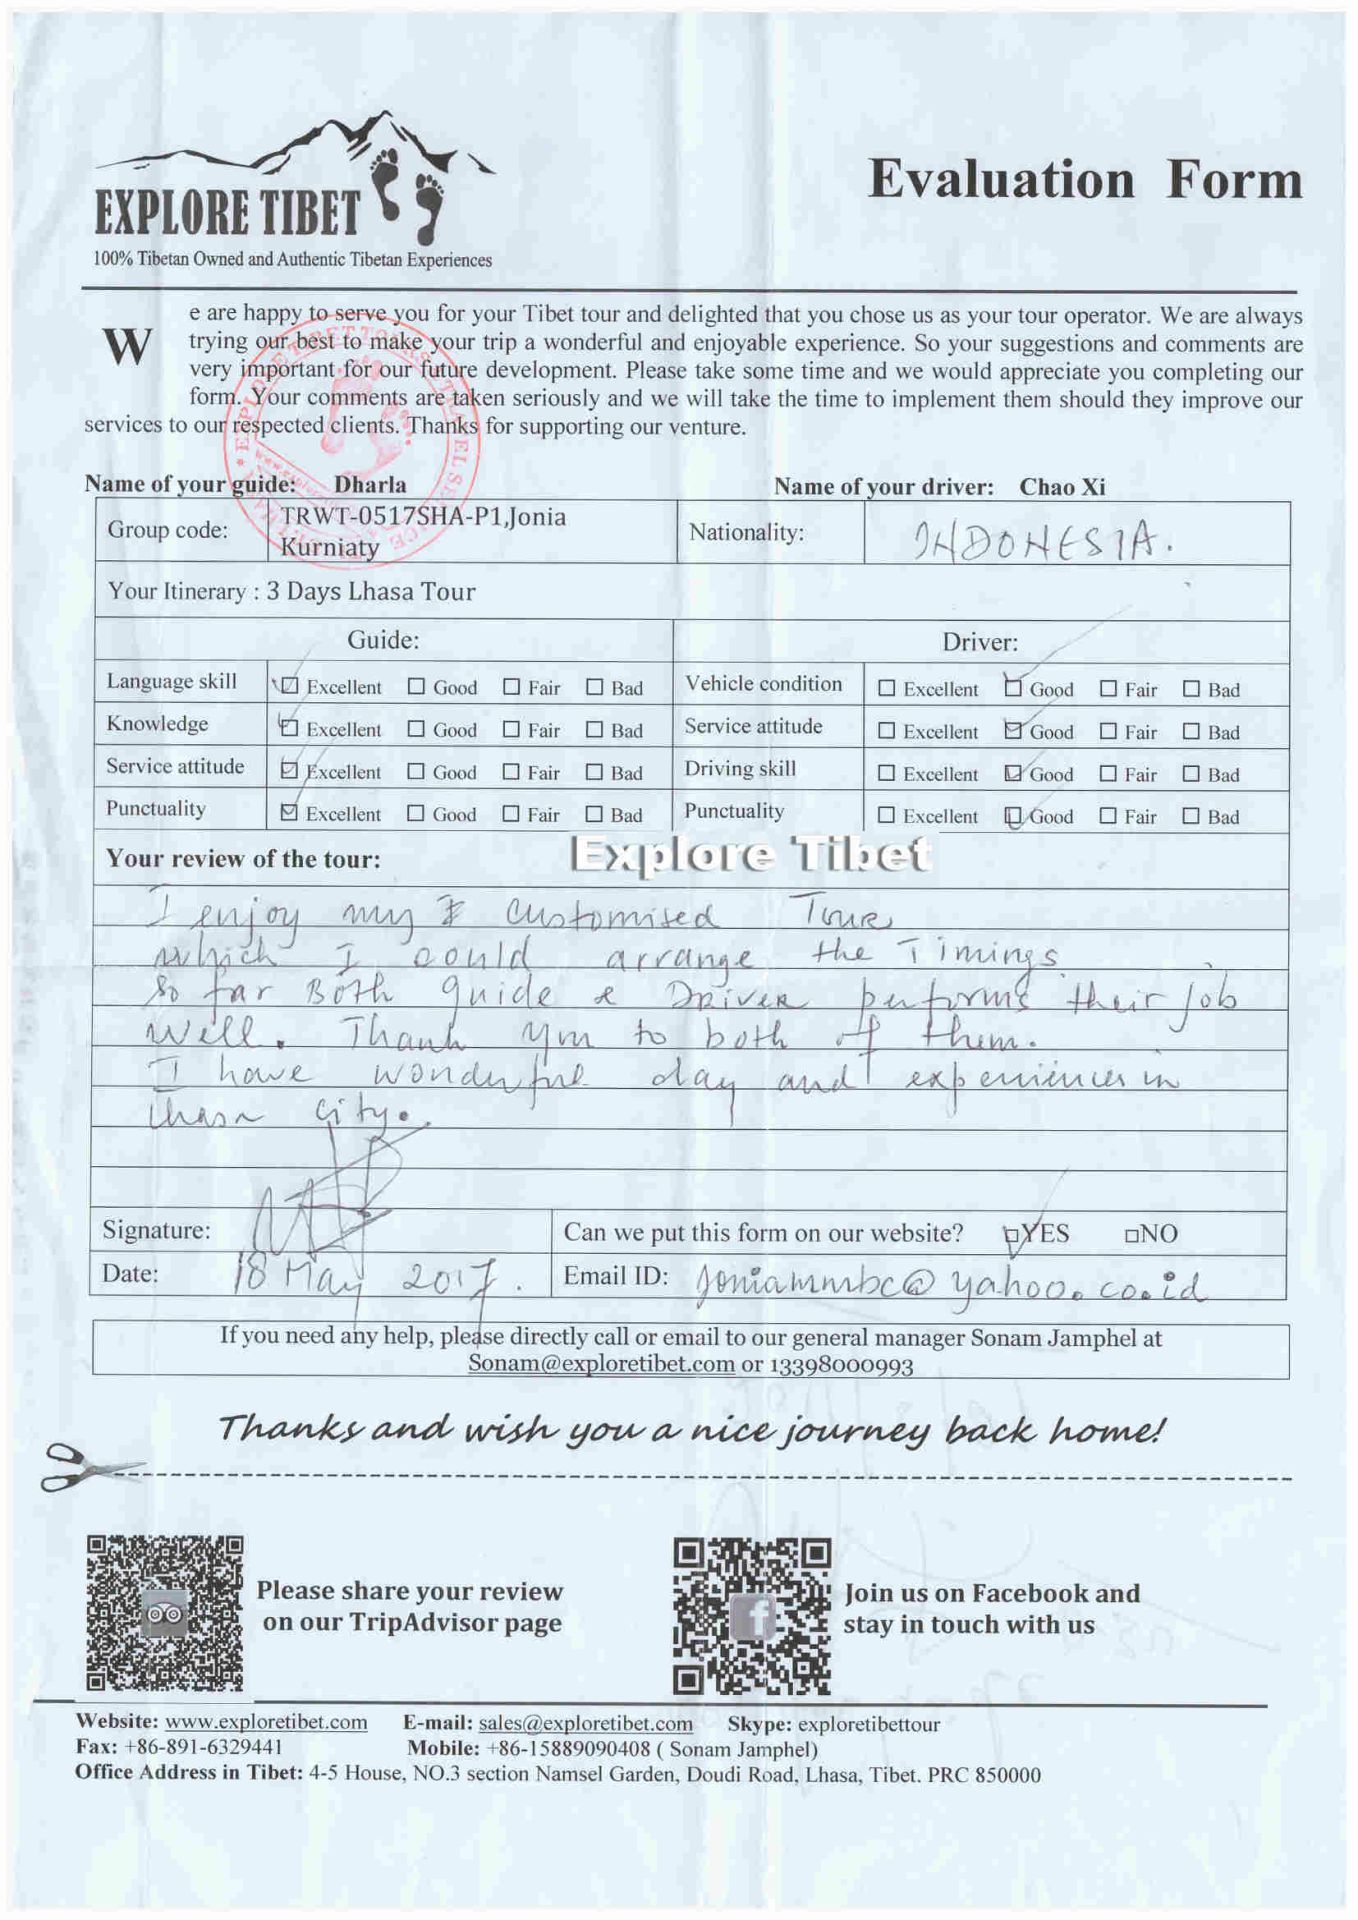 EXPLORE TIBET
100% Tibetan Owned and Authentic Tibetan Experiences
Evaluation Form
We are happy to serve you for your Tibet tour and delighted that you chose us as your tour operator. We are always
trying our best to make your trip a wonderful and enjoyable experience. So your suggestions and comments are
very important for our future development. Please take some time and we would appreciate you completing our
form. Your comments are taken seriously and we will take the time to implement them should they improve our
services to our respected clients. Thanks for supporting our venture.
Name of your guide: Dharla Name of your driver: Chao Xi
Group code: TRWT-0517SHA-P1,Jonia
Kurniaty
Nationality: INDONESIA.
Your Itinerary : 3 Days Lhasa Tour
Guide: Driver:
Language skill ☑ Excellent ☐ Good ☐ Fair ☐ Bad Vehicle condition ☐ Excellent ☑ Good ☐ Fair ☐ Bad
Knowledge ☑ Excellent ☐ Good ☐ Fair ☐ Bad Service attitude ☐ Excellent ☑ Good ☐ Fair ☐ Bad
Service attitude ☑ Excellent ☐ Good ☐ Fair ☐ Bad Driving skill ☐ Excellent ☑ Good ☐ Fair ☐ Bad
Punctuality ☑ Excellent ☐ Good ☐ Fair ☐ Bad Punctuality ☐ Excellent ☑ Good ☐ Fair ☐ Bad
Your review of the tour: Explore Tibet
I enjoy my customised Tour
which I could arrange the Timings
So far Both guide & DRIVER performs their job
well. Thank you to both of them.
I have wonderful day and experiences in
Lhasa city.
Signature: Can we put this form on our website? ☑YES ☐NO
Date: 18 May 2017. Email ID: Joniammbc@yahoo.co.id
If you need any help, please directly call or email to our general manager Sonam Jamphel at
Sonam@exploretibet.com or 13398000993
Thanks and wish you a nice journey back home!
Please share your review
on our TripAdvisor page
Join us on Facebook and
stay in touch with us
Website: www.exploretibet.com E-mail: sales@exploretibet.com Skype: exploretibettour
Fax: +86-891-6329441 Mobile: +86-15889090408 ( Sonam Jamphel)
Office Address in Tibet: 4-5 House, NO.3 section Namsel Garden, Doudi Road, Lhasa, Tibet. PRC 850000